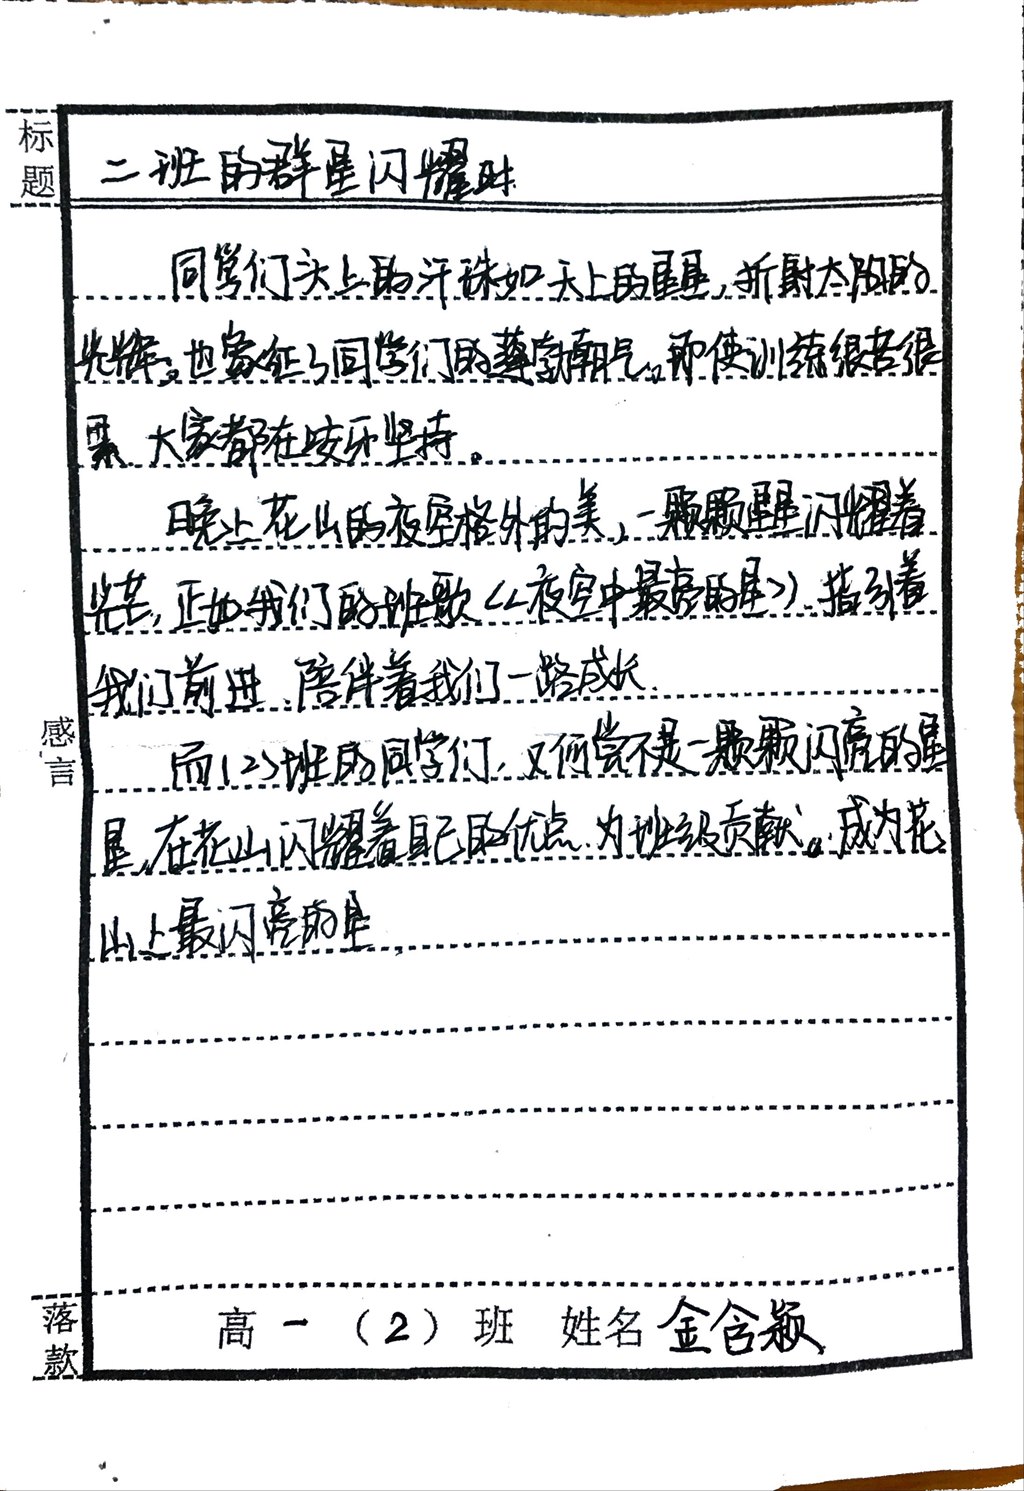 标题
二班的群星闪耀时
同学们头上的汗珠如天上的星星，折射太阳的
光辉。也象征了同学们的蓬勃朝气。即使训练很苦很
累，大家都在咬牙坚持。
晚上花山的夜空格外的美，一颗颗星星闪耀着
光芒，正如我们的班歌《夜空中最亮的星》，指引着
我们前进、陪伴着我们一路成长.
感言
而(2)班的同学们，又何尝不是一颗颗闪亮的星
星，在花山闪耀着自己的优点、为班级贡献。成为花
山上最闪亮的星.
落款
高一（2）班 姓名 金含颖